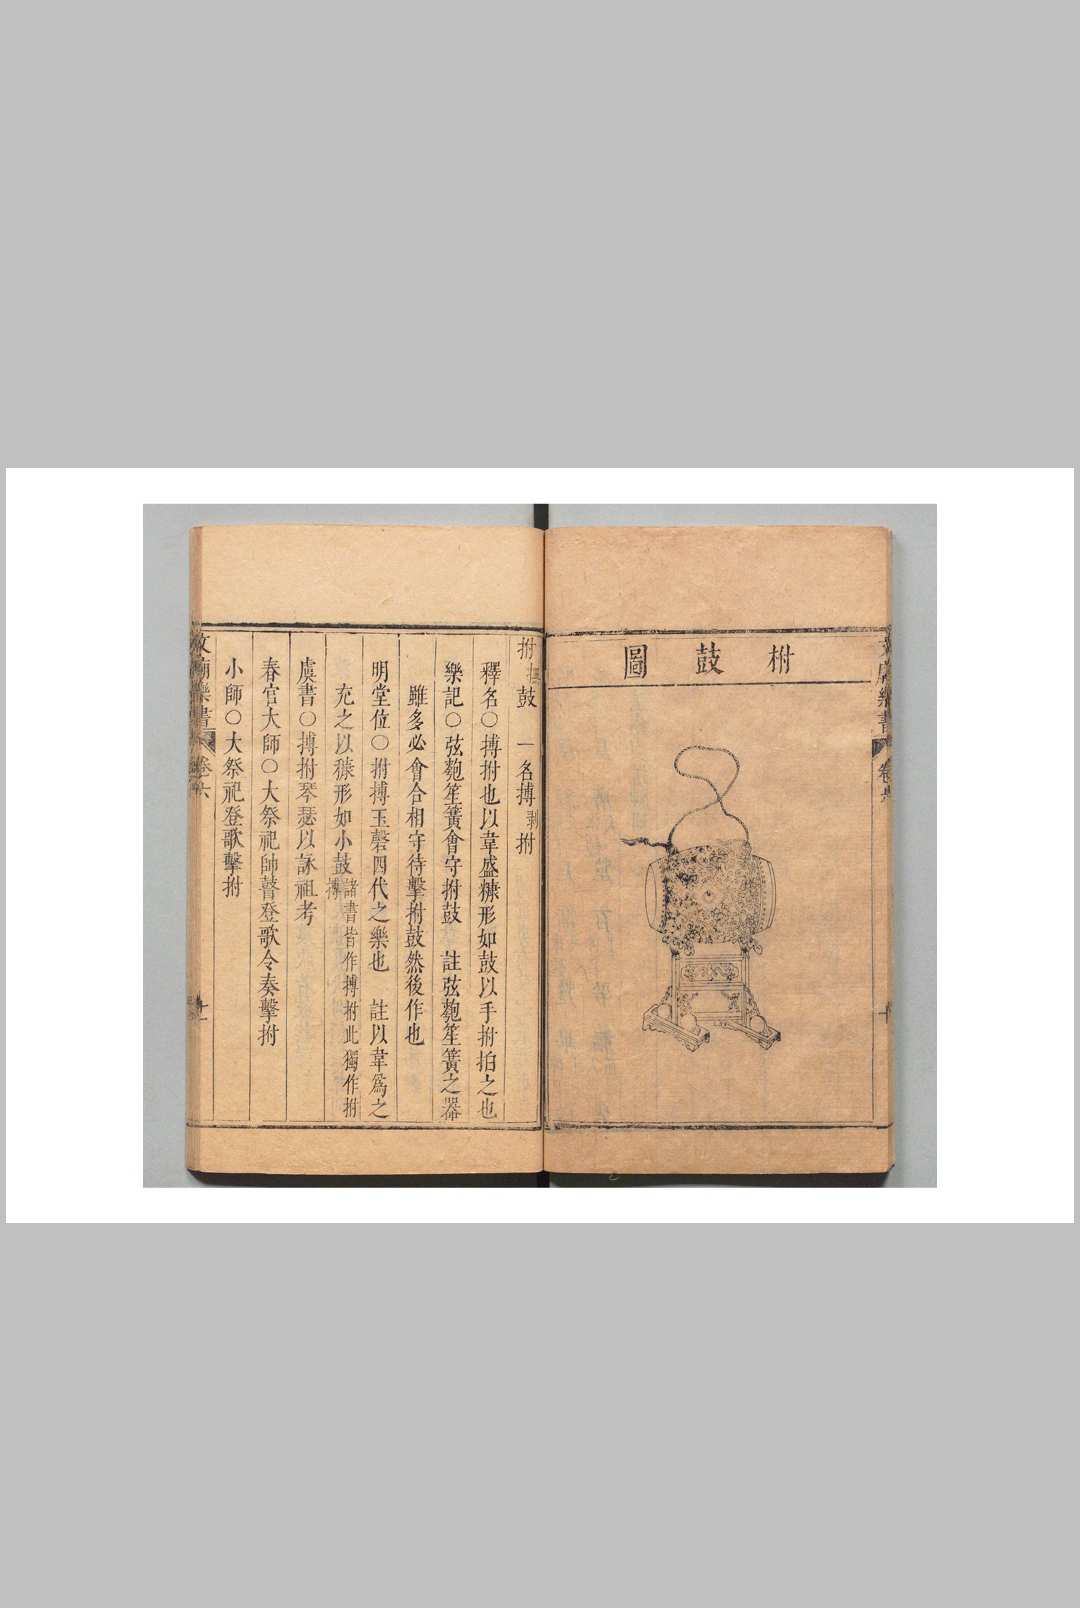 拊鼓圖
文廟樂書
卷六
拊鼓　一名搏拊
釋名○搏拊也以韋盛糠形如鼓以手拊拍之也
樂記○弦匏笙簧會守拊鼓　註弦匏笙簧之器
雖多必會合相守待擊拊鼓然後作也
明堂位○拊搏玉磬四代之樂也　註以韋為之
充之以穅形如小鼓諸書皆作搏拊此獨作拊
搏
虞書○搏拊琴瑟以詠祖考
春官大師○大祭祀帥瞽登歌令奏擊拊
小師○大祭祀登歌擊拊
文廟樂書
卷六
十一